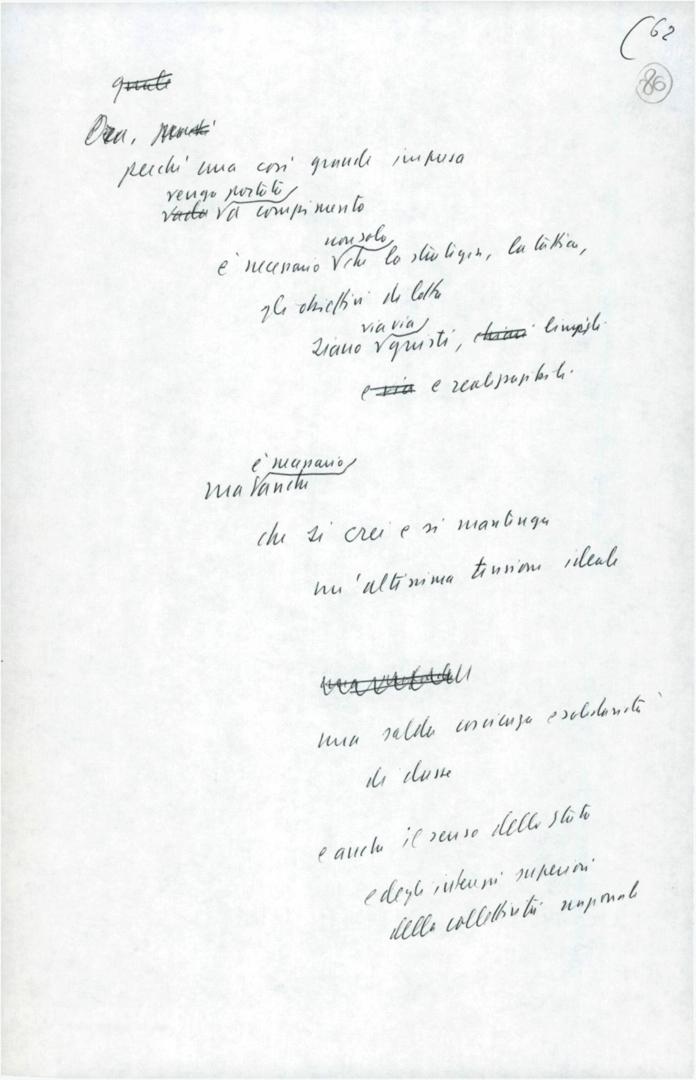 (62
86
quale
Ora,
perché una così grande impresa
venga portata
vada a compimento
non solo
è necessario che la strategia, la tattica,
gli obiettivi di lotta
via via
siano giusti, chiari limpidi
e via e realizzabili.
è necessario
ma anche
che si crei e si mantenga
un'altissima tensione ideale
una salda coscienza e solidarietà
di classe
e anche il senso dello Stato
e degli interessi superiori
della collettività nazionale